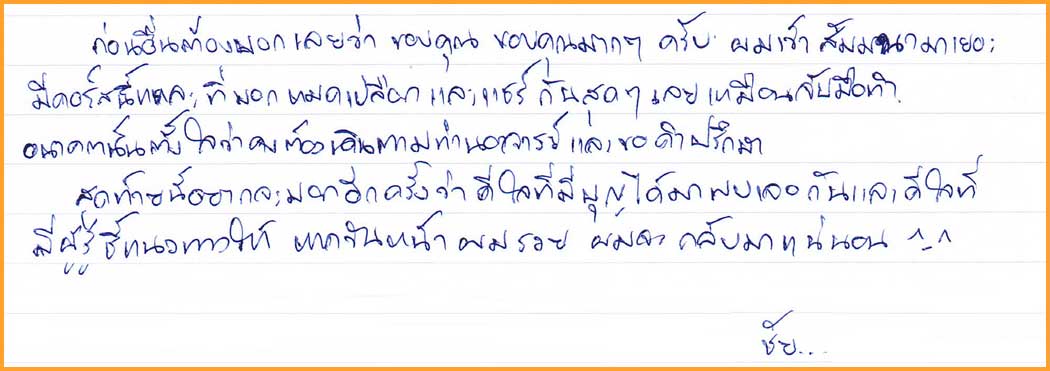 ก่อนอื่นต้องบอกเลยว่า ขอบคุณ ขอบคุณมากๆ ครับ ผมเข้าสัมมนามาเยอะ
มีคอร์สนี้แหละ ที่บอกหมดเปลือกและแชร์กันสุดๆ เลย เหมือนจับมือทำ
อนาคตนั้นตั้งใจว่าคงต้องเดินตามท่านอาจารย์และขอคำปรึกษา
สุดท้ายนี้อยากจะบอกอีกครั้งว่าดีใจที่มีบุญได้มาพบเจอกันและดีใจที่
มีผู้รู้ชี้แนวทางให้ หากวันหน้าผมรวย ผมจะกลับมาแน่นอน ^_^
ชัย...